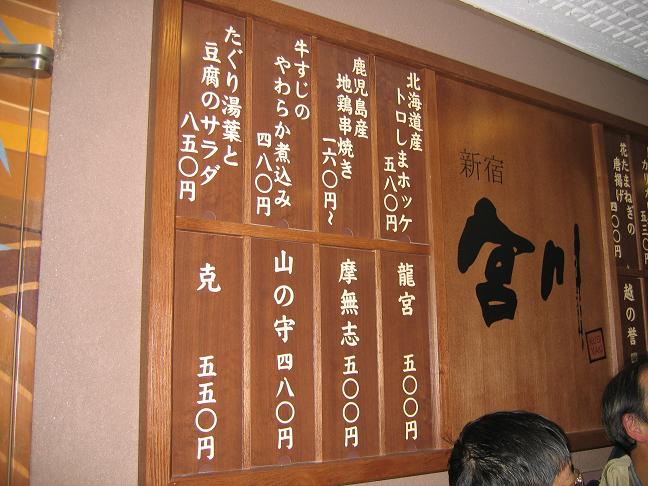 花たまねぎの
唐揚げ 四〇〇円
越の誉
新宿
宮川
北海道産
トロしまホッケ
五八〇円
鹿児島産
地鶏串焼き
一六〇円〜
牛すじの
やわらか煮込み
四八〇円
たぐり湯葉と
豆腐のサラダ
八五〇円
龍宮 五〇〇円
摩無志 五〇〇円
山の守 四八〇円
克 五五〇円